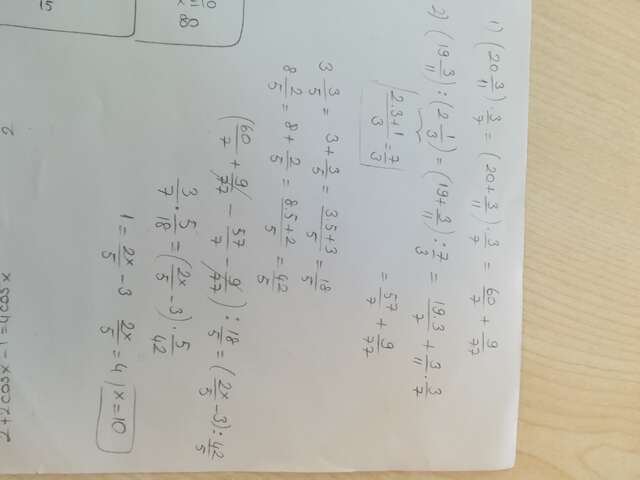 1) (20 3/11) · 3/7 = (20 + 3/11) · 3/7 = 60/7 + 9/77
2) (19 3/11) : (2 1/3) = (19 + 3/11) : 7/3 = 19.3/7 + 3/11 · 3/7
2.3+1/3 = 7/3
= 57/7 + 9/77
3 3/5 = 3 + 3/5 = 3.5+3/5 = 18/5
8 2/5 = 8 + 2/5 = 8.5+2/5 = 42/5
(60/7 + 9/77 - 57/7 - 9/77) : 18/5 = (2x/5 - 3) : 42/5
3/7 · 5/18 = (2x/5 - 3) · 5/42
1 = 2x/5 - 3 2x/5 = 4 | x = 10
2+2cosx-1=4cosx
15